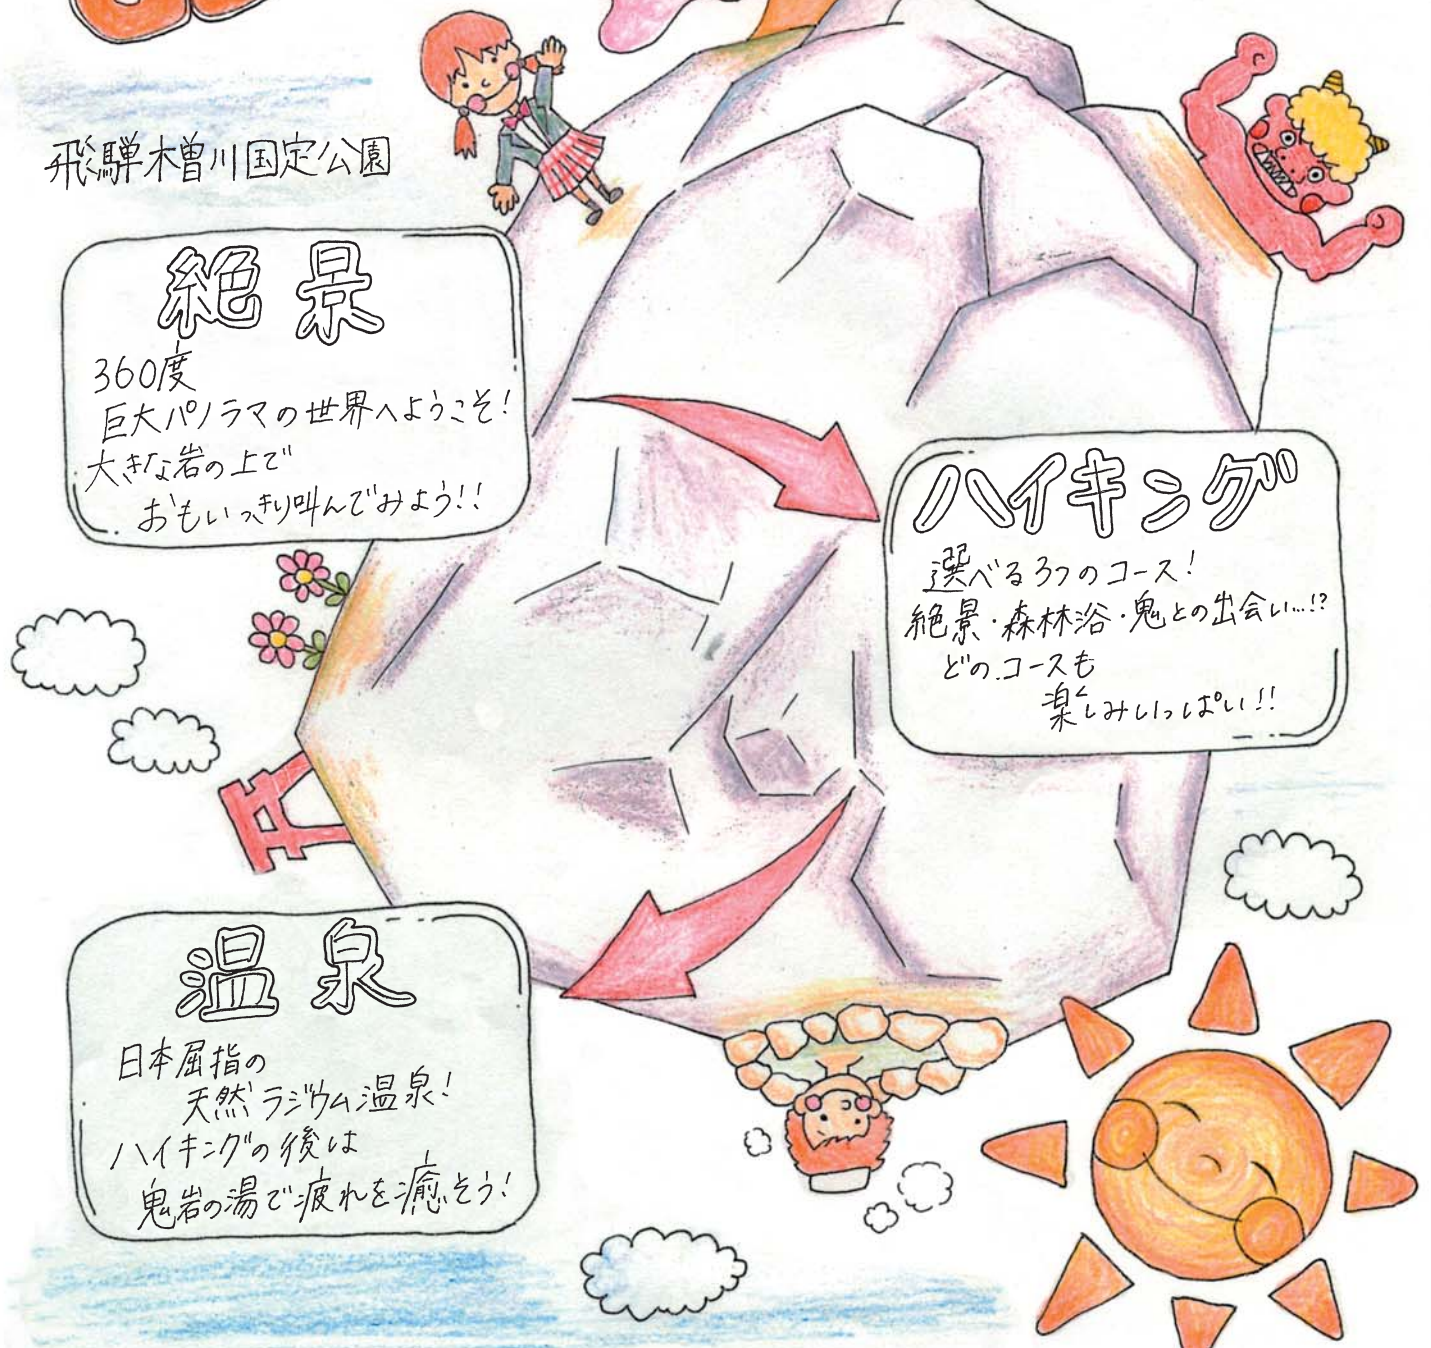 飛騨木曽川国定公園
絶景
360度
巨大パノラマの世界へようこそ!
大きな岩の上で
おもいっきり叫んでみよう!!
ハイキング
選べる3つのコース!
絶景・森林浴・鬼との出会い…!?
どのコースも
楽しみいっぱい!!
温泉
日本屈指の
天然ラジウム温泉!
ハイキングの後は
鬼岩の湯で疲れを癒そう!